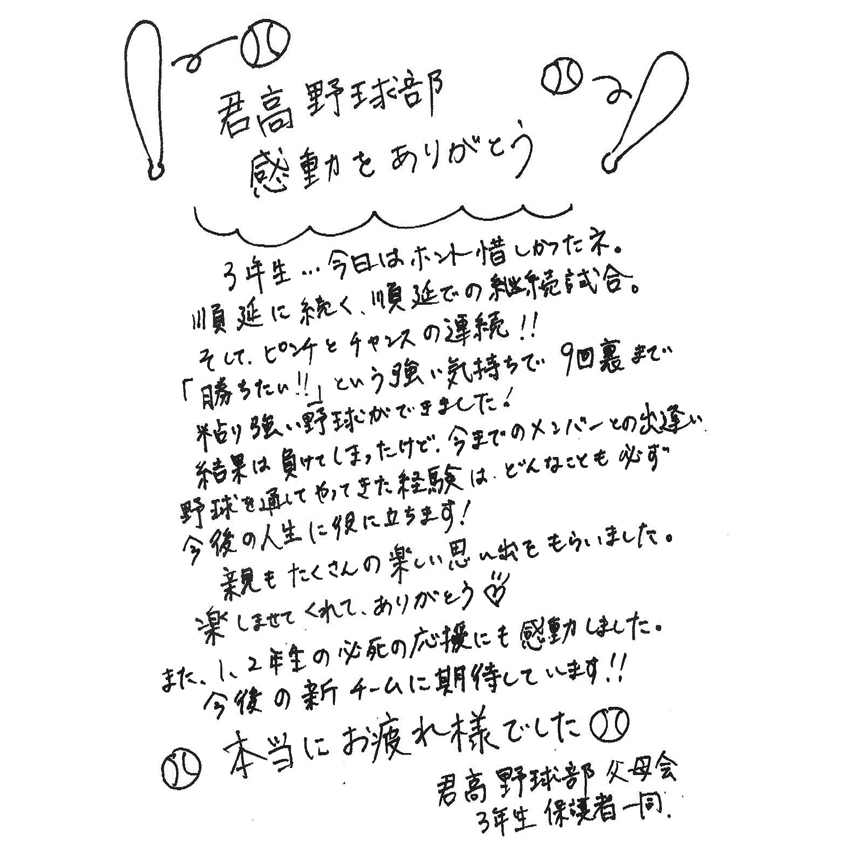 君高野球部
感動をありがとう
3年生…今日はホント惜しかったネ。
順延に続く、順延での継続試合。
そして、ピンチとチャンスの連続!!
「勝ちたい!!」という強い気持ちで9回裏まで
粘り強い野球ができました!
結果は負けてしまったけど、今までのメンバーとの出逢い
野球を通してやってきた経験は、どんなことも必ず
今後の人生に役に立ちます!
親もたくさんの楽しい思い出をもらいました。
楽しませてくれて、ありがとう♡
また、1、2年生の必死の応援にも感動しました。
今後の新チームに期待しています!!
本当にお疲れ様でした
君高野球部父母会
3年生保護者一同.